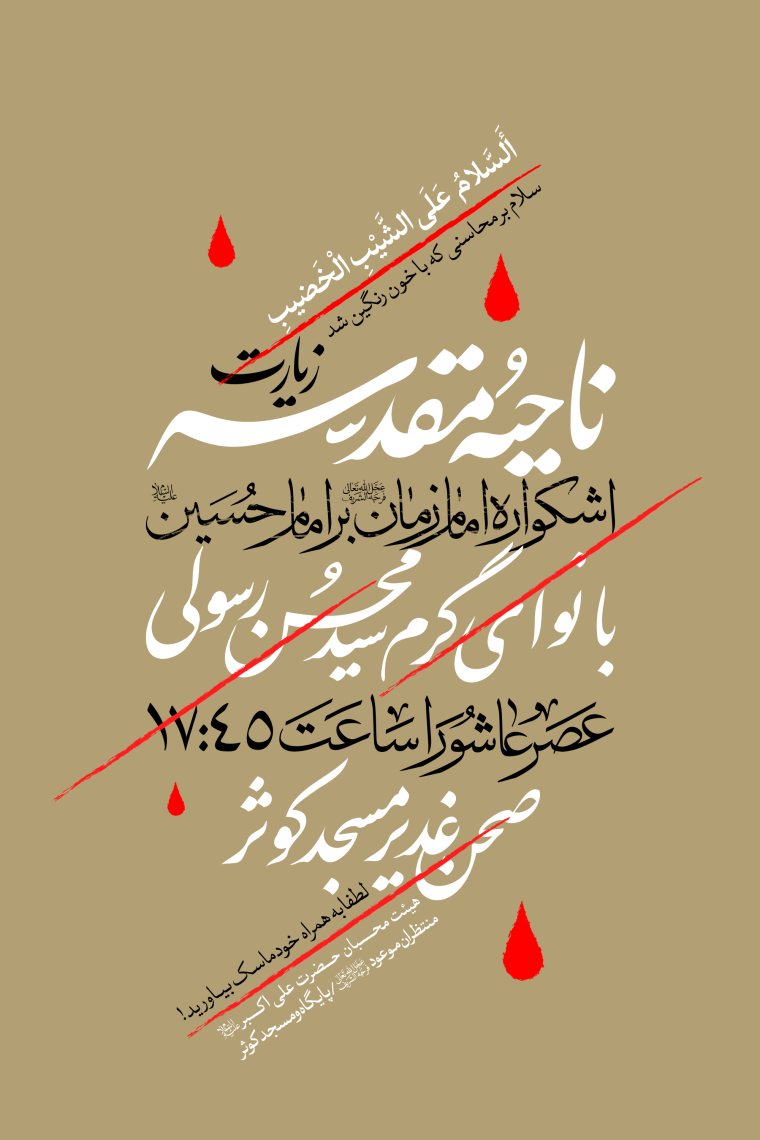 أَلسَّلامُ عَلَى الشَّيْبِ الْخَضيبِ
سلام بر محاسنی که با خون رنگین شد
زیارت
ناحیهٔ مُقدسه
اشکواره امام زمان عَجَّلَ اللهُ تَعالی فَرَجَهُ الشَّریف بر امام حُسَین علیه‌السلام
با نوای گرم سید محسن رسولی
عَصر عاشورا سَاعَت ۱۷:٤٥
صحن غدیر مسجد کوثر
لطفا به همراه خود ماسک بیاورید!
هیئت محبان حضرت علی اکبر علیه‌السلام
منتظران موعود عَجَّلَ اللهُ تَعالی فَرَجَهُ الشَّریف / پایگاه و مسجد کوثر